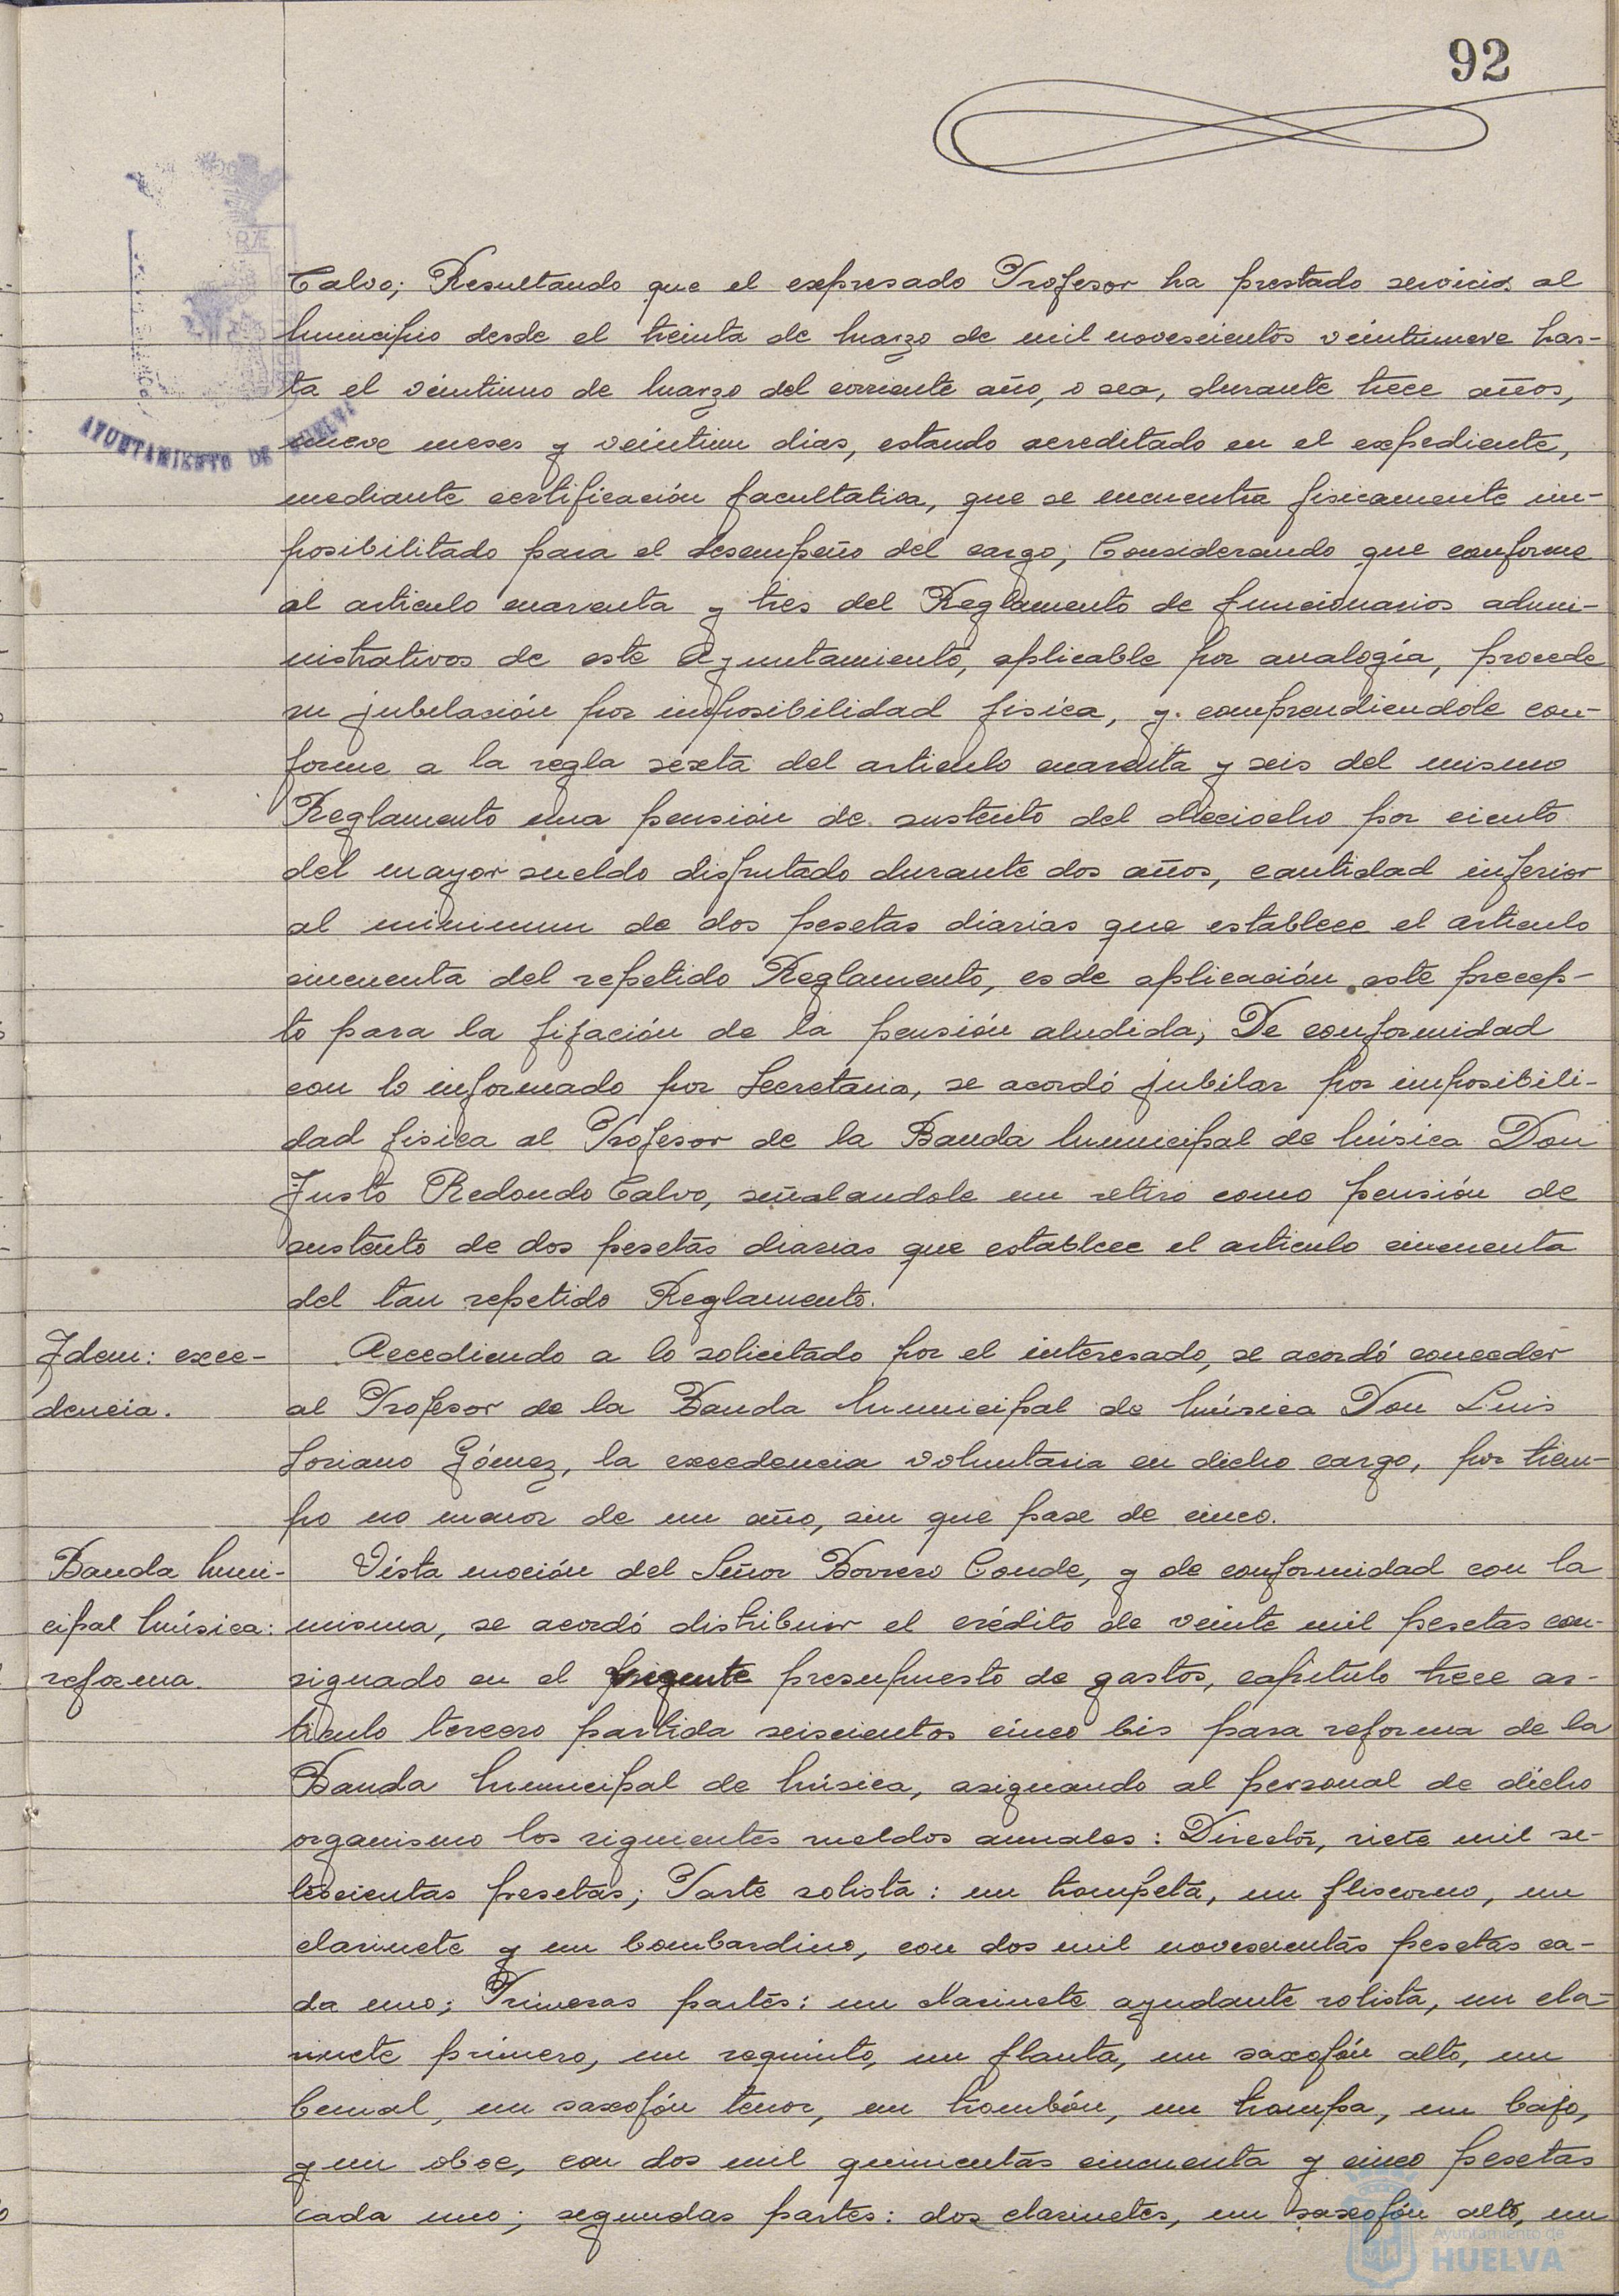 92
AYUNTAMIENTO DE HUELVA
Calvo; Resultando que el expresado Profesor ha prestado servicios al
Municipio desde el treinta de Marzo de mil novescientos veintinueve has-
ta el veintiuno de Marzo del corriente año, o sea, durante trece años,
nueve meses y veintiun dias, estando acreditado en el expediente,
mediante certificación facultativa, que se encuentra fisicamente im-
posibilitado para el desempeño del cargo; Considerando que conforme
al articulo cuarenta y tres del Reglamento de funcionarios admi-
nistrativos de este Ayuntamiento, aplicable por analogía, procede
su jubilación por imposibilidad fisica, y comprendiendole con-
forme a la regla sexta del articulo cuarenta y seis del mismo
Reglamento una pensión de sustento del dieciocho por ciento
del mayor sueldo disfrutado durante dos años, cantidad inferior
al minimum de dos pesetas diarias que establece el articulo
cincuenta del repetido Reglamento, es de aplicación este precep-
to para la fijación de la pensión aludida; De conformidad
con lo informado por Secretaria, se acordó jubilar por imposibili-
dad fisica al Profesor de la Banda Municipal de Música Don
Justo Redondo Calvo, señalandole un retiro como pensión de
sustento de dos pesetas diarias que establece el articulo cincuenta
del tan repetido Reglamento.
Idem: exce-
dencia.
Accediendo a lo solicitado por el interesado, se acordó conceder
al Profesor de la Banda Municipal de Música Don Luis
Soriano Gómez, la excedencia voluntaria en dicho cargo, por tiem-
po no menor de un año, sin que pase de cinco.
Banda Muni-
cipal Música:
reforma.
Vista moción del Señor Borrero Conde, y de conformidad con la
misma, se acordó distribuir el crédito de veinte mil pesetas con-
signado en el vigente presupuesto de gastos, capitulo trece ar-
ticulo tercero partida seiscientos cinco bis para reforma de la
Banda Municipal de Música, asignando al personal de dicho
organismo los siguientes sueldos anuales: Director, siete mil se-
tescientas pesetas; Parte solista: un trompeta, un fliscorno, un
clarinete y un bombardino, con dos mil novescientas pesetas ca-
da uno; Primeras partes: un clarinete ayudante solista, un cla-
rinete primero, un requinto, un flauta, un saxofón alto, un
bemol, un saxofón tenor, un trombón, un trompa, un bajo,
y un oboe, con dos mil quinientas cincuenta y cinco pesetas
cada uno; segundas partes: dos clarinetes, un saxofón alto, un
Ayuntamiento de
HUELVA